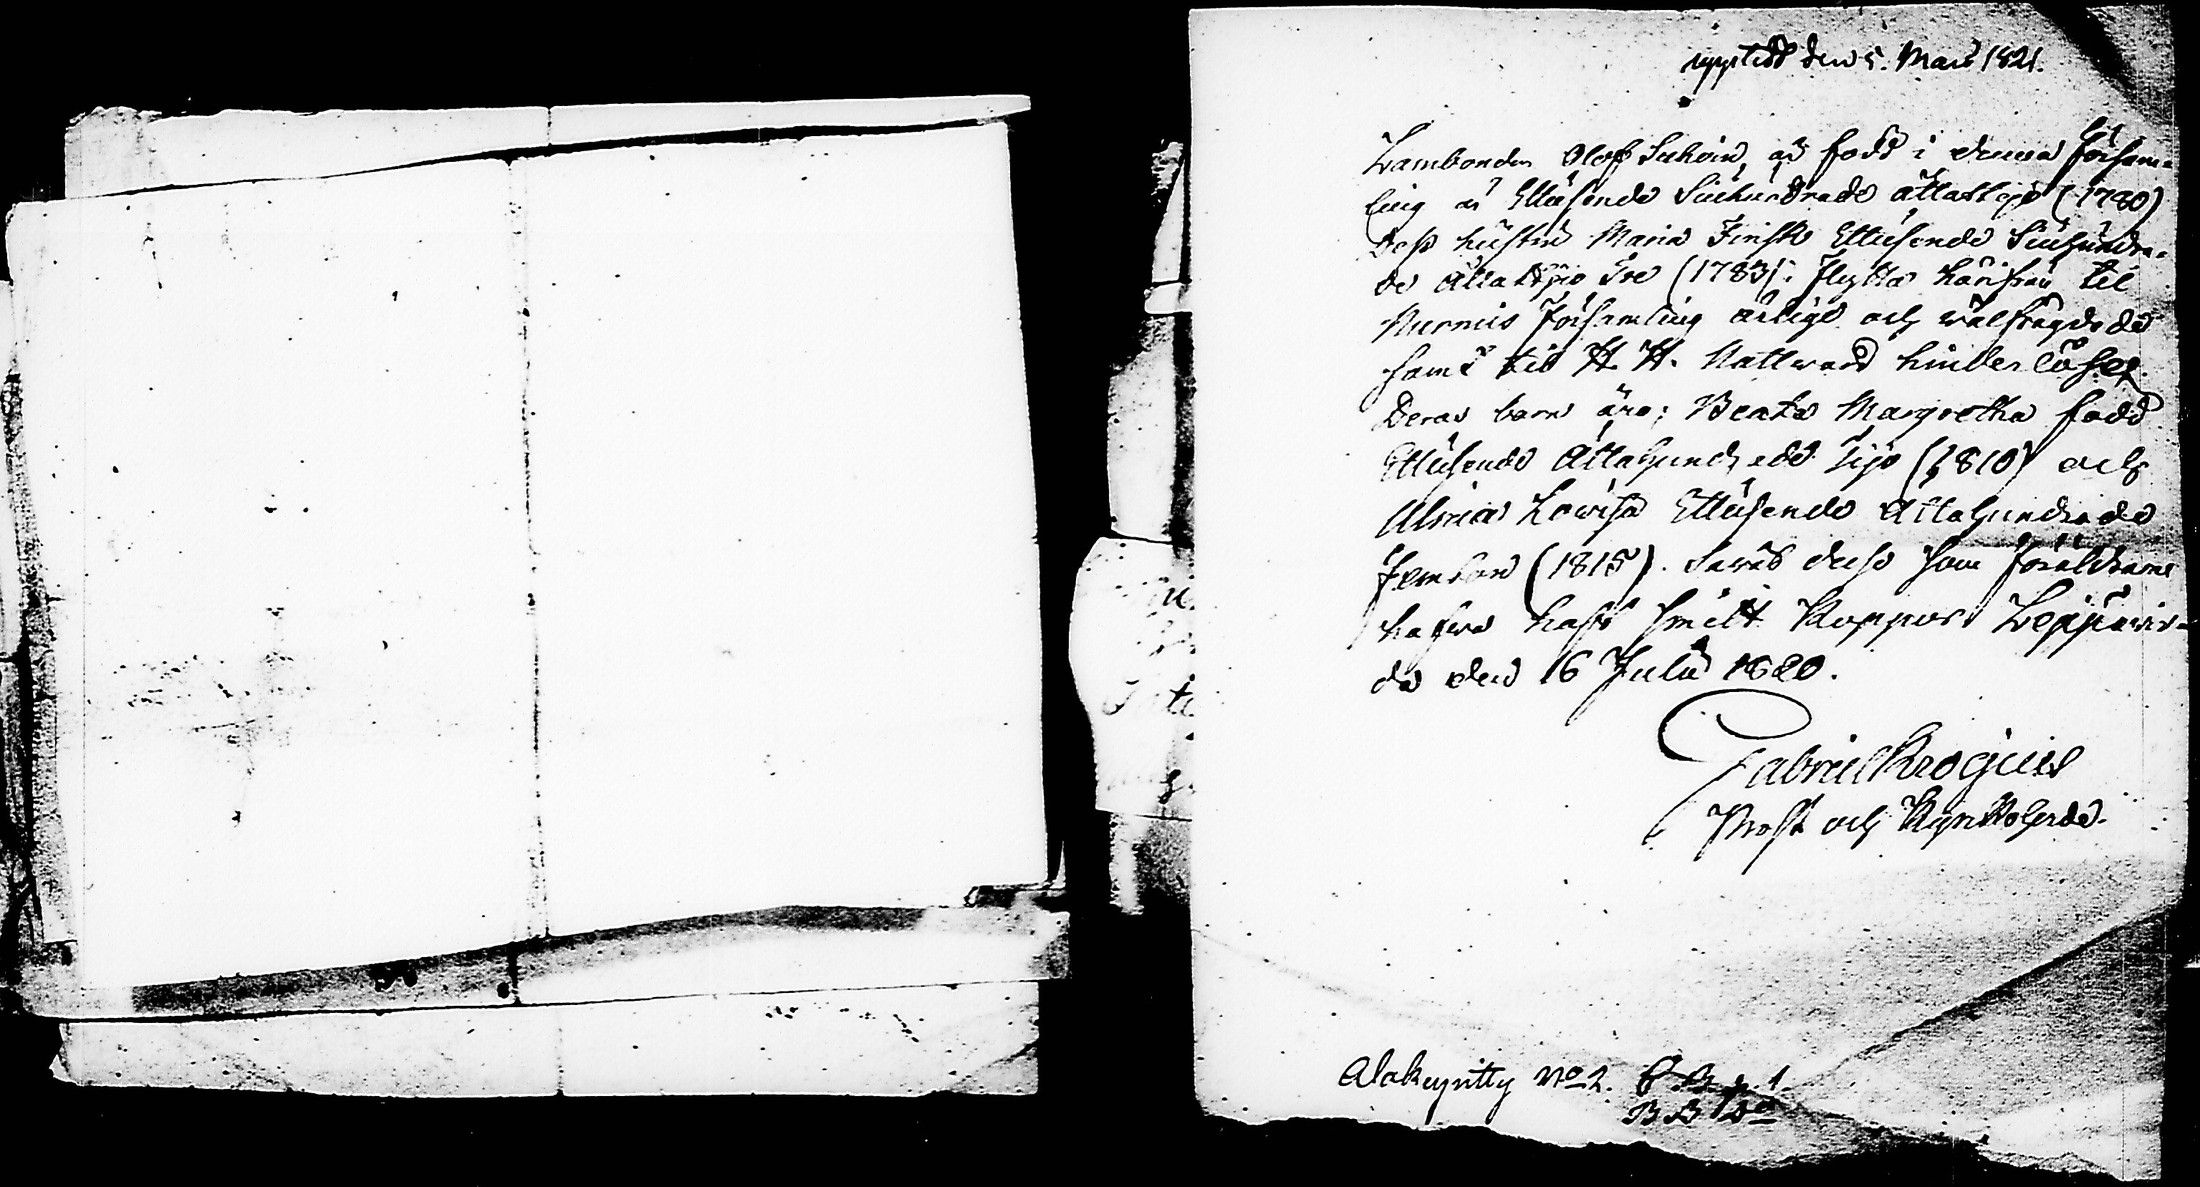 den 5. Mars 1821.
61
Lambonden Olof Suhoin, är född i denna försam-
ling år Ettusende Siuhundrade åttatijo (1780)
Dess hustru Maria Finsk Ettusende Siuhundra-
de åttatijo Tre (1783); flytta härifrån til
Nurmis församling ärlige och wälfrägdade
samt til H. H. Nattward hinderlöse.
Deras barn äro; Beata Margretha född
Ettusende Åttahundrade Tijo (1810) och
Ulrica Lowisa Ettusende Åttahundrade
femton (1815). Såwäl desse som föräldrarne
hafwa haft smitt Koppor. Leppäwir-
da den 16 Julii 1820.
Gabriel Krogius
Prost och Kyrkoherde.
Alakeyritty No 2. p. 1.
B B do